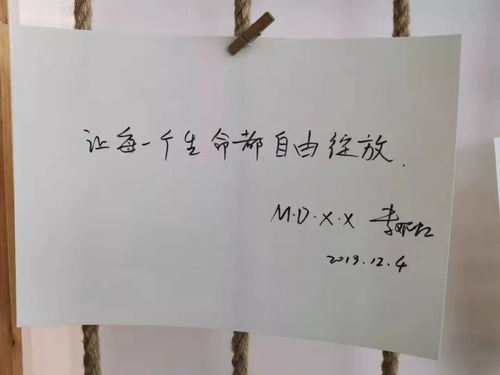 让每一个生命都自由绽放.
M.D.X.X 李
2019.12.4